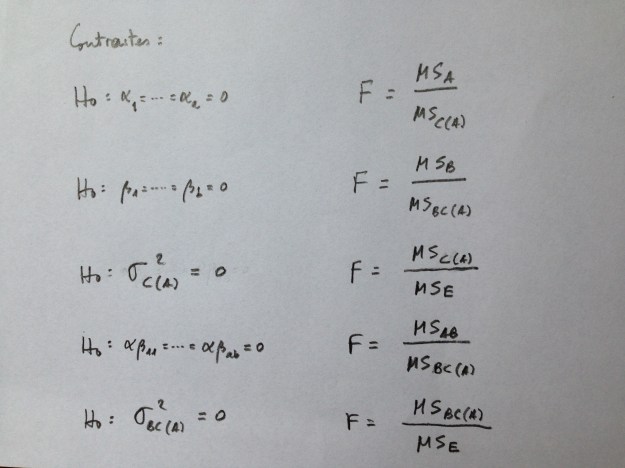 Contrastes:
H₀ : α₁ = ⋯ = αₐ = 0 F = MS_A / MS_C(A)
H₀ : β₁ = ⋯ = β_b = 0 F = MS_B / MS_BC(A)
H₀ : σ²_C(A) = 0 F = MS_C(A) / MS_E
H₀ : αβ₁₁ = ⋯ = αβ_ab = 0 F = MS_AB / MS_BC(A)
H₀ : σ²_BC(A) = 0 F = MS_BC(A) / MS_E